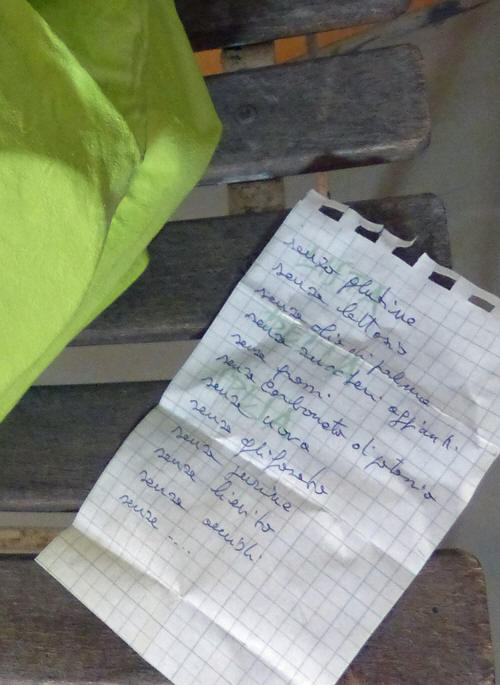 senza glutine
senza lattosio
senza olio di palma
senza zuccheri aggiunti
senza grassi
senza carbonato di potassio
senza uova
senza glifosato
senza farina
senza lievito
senza
senza ....